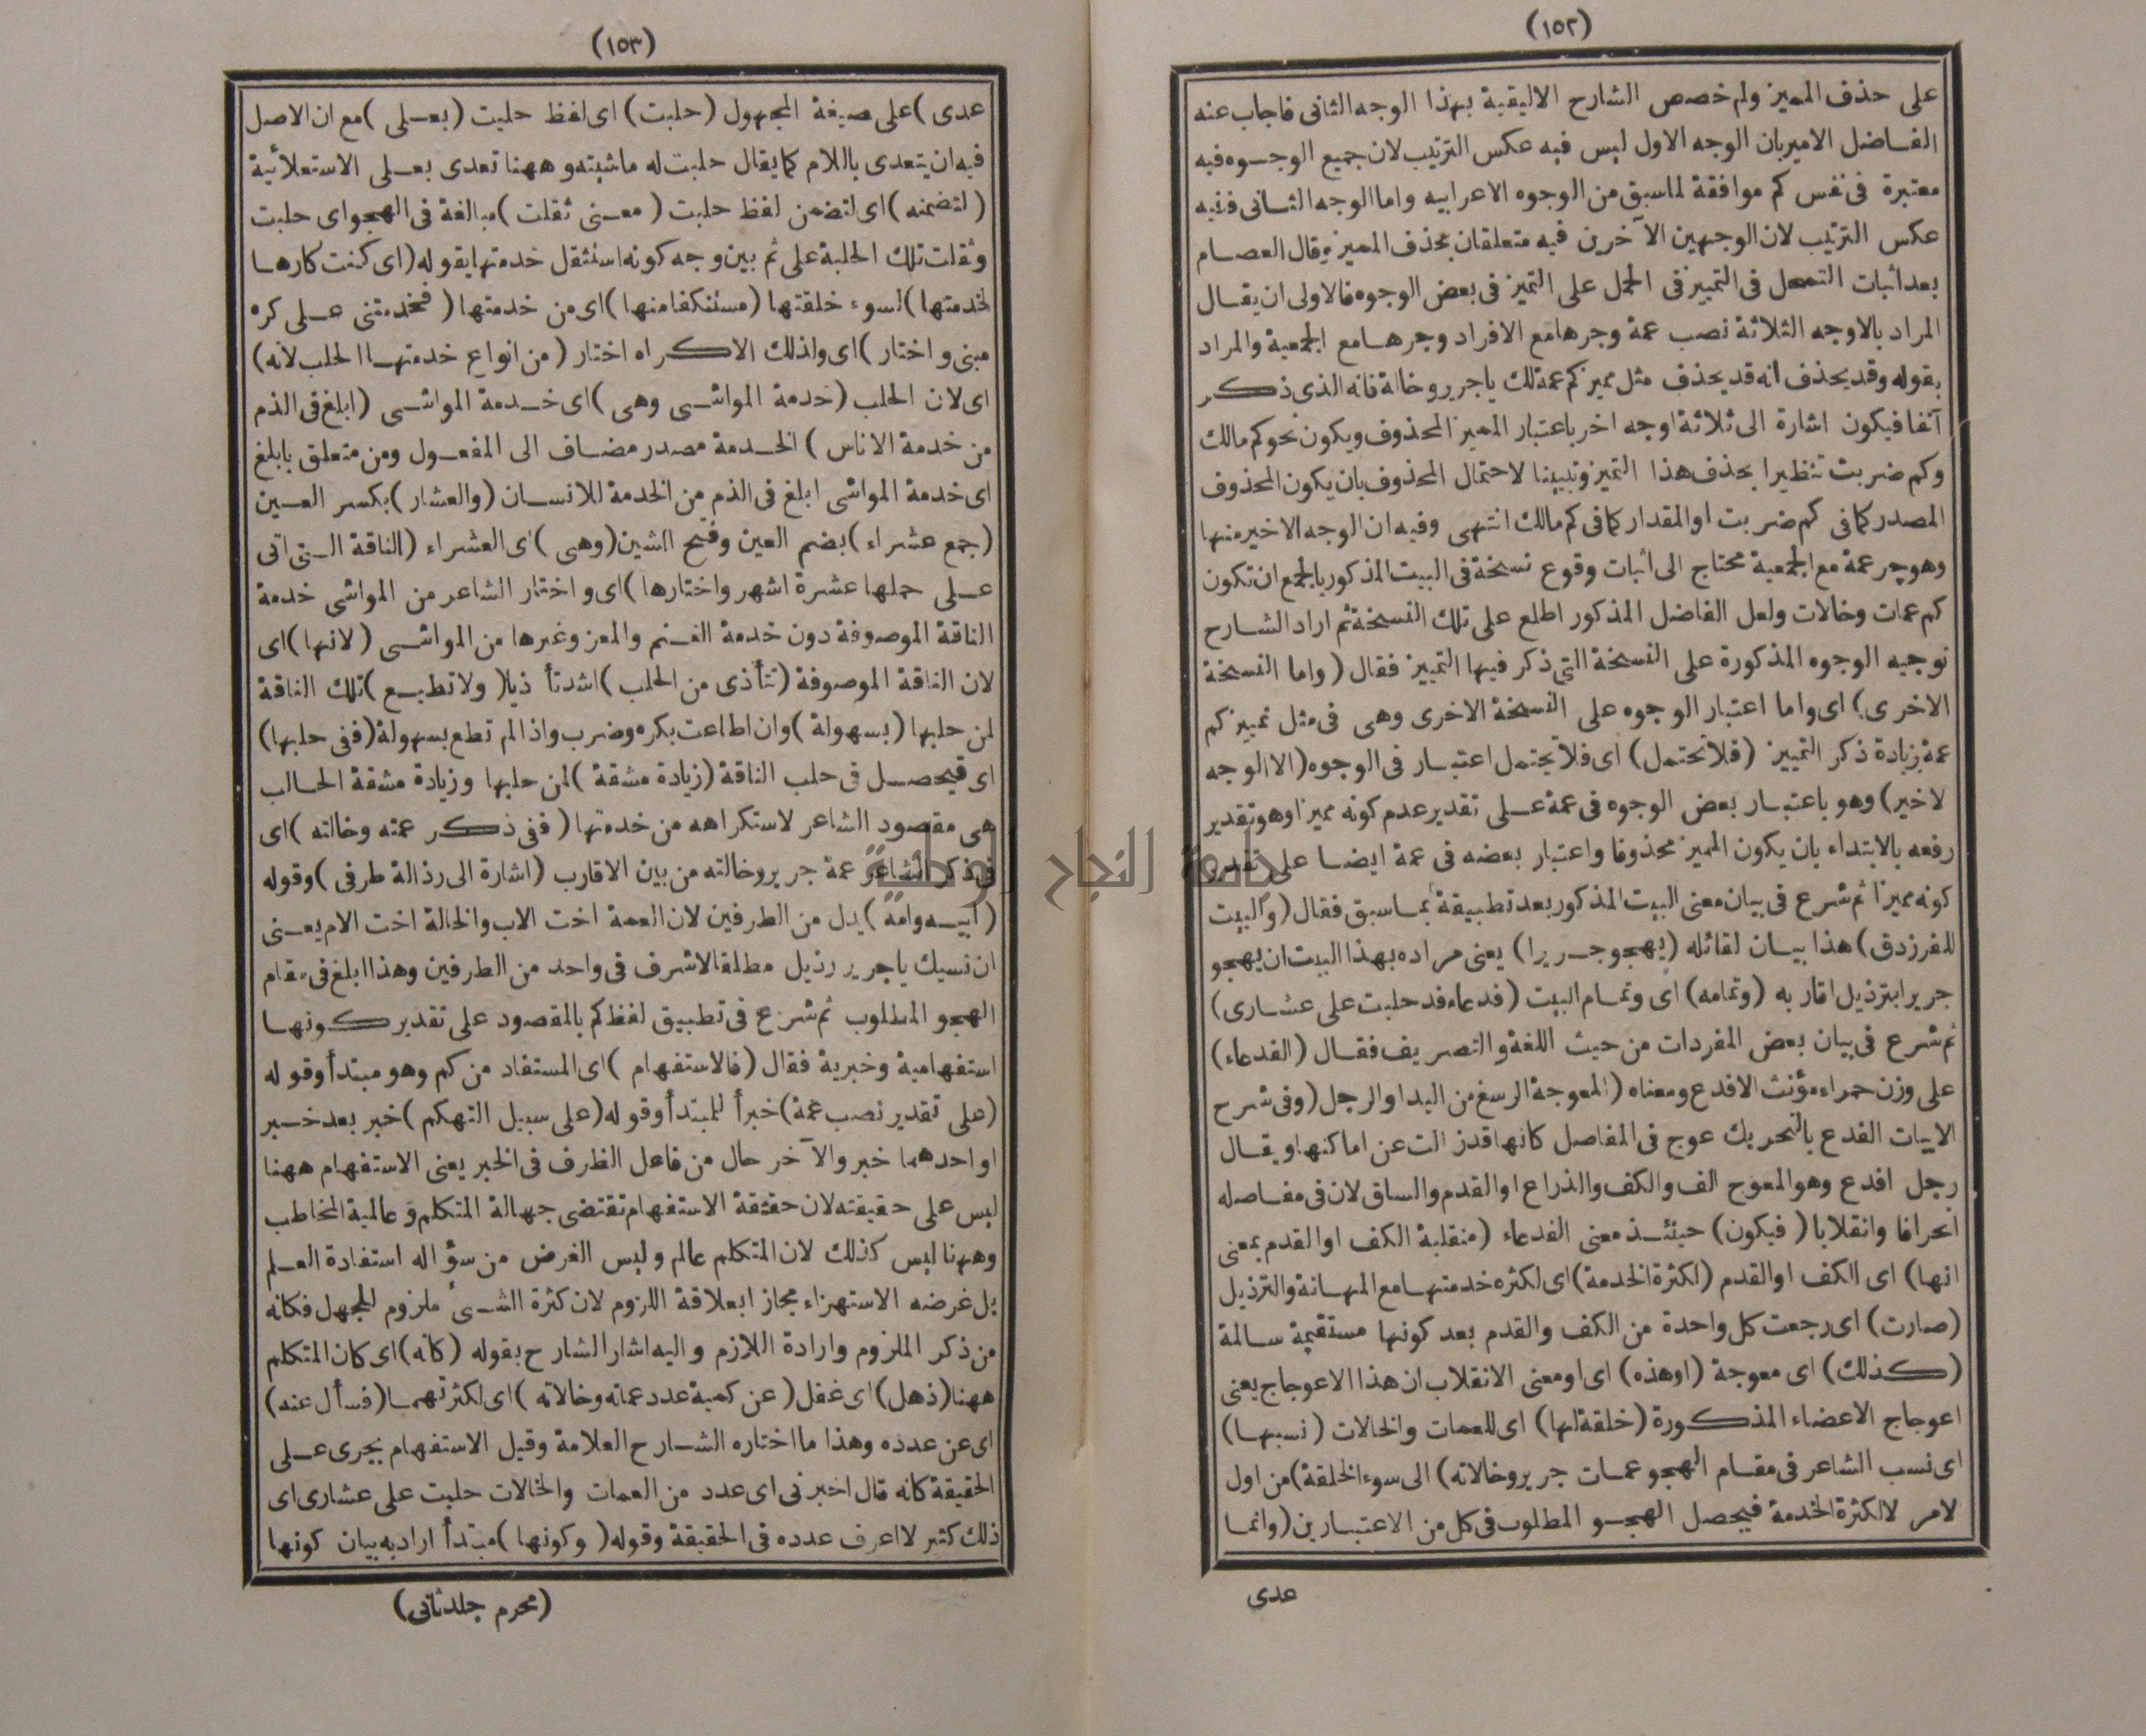 (١٥٢)
على حذف المميز ولم خصص الشارح الاليقية بهذا الوجه الثانى فاجاب عنه
الفاضل الامير بان الوجه الاول ليس فيه عكس الترتيب لان جميع الوجوه فيه
معتبرة فى نفس كم موافقة لما سبق من الوجوه الاعرابيه واما الوجه الثانى ففيه
عكس الترتيب لان الوجهين الآخرين فيه متعلقان بحذف المميز وقال العصام
بعد اثبات التمحل فى التمييز فى الحمل على التميز فى بعض الوجوه فالاولى ان يقال
المراد بالاوجه الثلاثة نصب عمة وجرها مع الافراد وجرها مع الجمعية والمراد
بقوله وقد يحذف انه قد يحذف مثل مميز كم عمة لك يا جرير وخالة فانه الذى ذكر
آنفا فيكون اشارة الى ثلاثة اوجه اخر باعتبار المميز المحذوف ويكون نحو كم مالك
وكم ضربت تنظيرا بحذف هذا التميز وتبيينا لاحتمال المحذوف بان يكون المحذوف
المصدر كما فى كم ضربت او المقدار كما فى كم مالك انتهى وفيه ان الوجه الاخير منها
وهو جر عمة مع الجمعية محتاج الى اثبات وقوع نسخة فى البيت المذكور بالجمع ان تكون
كم عمات وخالات ولعل الفاضل المذكور اطلع على تلك النسخة ثم اراد الشارح
توجيه الوجوه المذكورة على النسخة التى ذكر فيها التمييز فقال (واما النسخة
الاخرى) اى واما اعتبار الوجوه على النسخة الاخرى وهى فى مثل تمييز كم
عمة بزيادة ذكر التمييز (فلا تحتمل) اى فلا يحتمل اعتبار فى الوجوه (الا الوجه
لاخير) وهو باعتبار بعض الوجوه فى عمة على تقدير عدم كونه مميزا وهو تقدير
رفعه بالابتداء بان يكون المميز محذوفا واعتبار بعضه فى عمة ايضا على تقدير
كونه مميزا ثم شرع فى بيان معنى البيت المذكور بعد تطبيقة بما سبق فقال (والبيت
للفرزدق) هذا بيان لقائله (يهجو جريرا) يعنى مراده بهذا البيت ان يهجو
جريرا بترذيل اقار به (وتمامه) اى وتمام البيت (فدعاء قد حلبت على عشارى)
ثم شرع فى بيان بعض المفردات من حيث اللغة والتصريف فقال (الفدعاء)
على وزن حمراء مؤنث الافدع ومعناه (المعوجة الرسغ من اليد او الرجل (وفى شرح
الابيات الفدع بالتحريك عوج فى المفاصل كانها قد زالت عن اماكنها ويقال
رجل افدع وهو المعوج الف والكف والذراع او القدم والساق لان فى مفاصله
انحرافا وانقلابا (فيكون) حينئذ معنى الفدعاء (منقلبة الكف او القدم بمعنى
انها) اى الكف او القدم (لكثرة الخدمة) اى لكثره خدمتها مع المهانة والترذيل
(صارت) اى رجعت كل واحدة من الكف والقدم بعد كونها مستقيمة سالمة
(كذلك) اى معوجة (او هذه) اى او معنى الانقلاب ان هذا الاعوجاج يعنى
اعوجاج الاعضاء المذكورة (خلقة لها) اى للعمات والخالات (نسبها)
اى نسب الشاعر فى مقام الهجو عمات جرير وخالاته) الى سوء الخلقة) من اول
لامر لا لكثرة الخدمة فيحصل الهجو المطلوب فى كل من الاعتبارين (وانما
عدى
(١٥٣)
عدى) على صيغة المجهول (حلبت) اى لفظ حلبت (بعلى) مع ان الاصل
فيه ان يتعدى باللام كما يقال حلبت له ماشيته وههنا تعدى بعلى الاستعلائية
(لتضمنه) اى لتضمن لفظ حلبت (معنى ثقلت) مبالغة فى الهجو اى حلبت
وثقلت تلك الحلبة على ثم بين وجه كونه استثقل خدمتها بقوله (اى كنت كارها
لخدمتها) لسوء خلقتها (مستنكفا منها) اى من خدمتها (فخدمتنى على كره
مبنى واختار) اى ولذلك الاكراه اختار (من انواع خدمتها الحلب لانه)
اى لان الحلب (خدمة المواشى وهى) اى خدمة المواشى (ابلغ فى الذم
من خدمة الاناس) الخدمة مصدر مضاف الى المفعول ومن متعلق بابلغ
اى خدمة المواشى ابلغ فى الذم من الخدمة للانسان (والعشار) بكسر العين
(جمع عشراء) بضم العين وفتح الشين (وهى) اى العشراء (الناقة التى اتى
على حملها عشرة اشهر واختارها) اى واختار الشاعر من المواشى خدمة
الناقة الموصوفة دون خدمة الغنم والمعز وغيرها من المواشى (لانها) اى
لان الناقة الموصوفة (تتأذى من الحلب) اشد تأ ذيا (ولا تطيع) تلك الناقة
لمن حلبها (بسهولة) وان اطاعت بكره وضرب واذا لم تطع بسهولة (ففى حلبها)
اى فيحصل فى حلب الناقة (زيادة مشقة) لمن حلبها وزيادة مشقة الحالب
هى مقصود الشاعر لاستكراهه من خدمتها (ففى ذكر عمته وخالته) اى
فى ذكر الشاعر عمة جرير وخالته من بين الاقارب (اشارة الى رذالة طرفى) وقوله
(ابيه وامه) بدل من الطرفين لان العمة اخت الاب والخالة اخت الام يعنى
ان نسبك يا جرير رذيل مطلقا لا شرف فى واحد من الطرفين وهذا ابلغ فى مقام
الهجو المطلوب ثم شرع فى تطبيق لفظ كم بالمقصود على تقدير كونها
استفهامية وخبرية فقال (فالاستفهام) اى المستفاد من كم وهو مبتدأ وقوله
(على تقدير نصب عمة) خبرأ للمبتدأ وقوله (على سبيل التهكم) خبر بعد خبر
او احدهما خبر والآخر حال من فاعل الظرف فى الخبر يعنى الاستفهام ههنا
ليس على حقيقته لان حقيقة الاستفهام تقتضى جهالة المتكلم وعالمية المخاطب
وههنا ليس كذلك لان المتكلم عالم وليس الغرض من سؤاله استفادة العلم
بل غرضه الاستهزاء مجازا بعلاقة اللزوم لان كثرة الشىء ملزوم للجهل فكانه
من ذكر الملزوم وارادة اللازم واليه اشار الشارح بقوله (كانه) اى كان المتكلم
ههنا (ذهل) اى غفل (عن كمية عدد عماته وخالاته) اى لكثرتهما (فسأل عنه)
اى عن عدده وهذا ما اختاره الشارح العلامة وقيل الاستفهام يجرى على
الحقيقة كانه قال اخبرنى اى عدد من العمات والخالات حلبت على عشارى اى
ذلك كثير لا اعرف عدده فى الحقيقة وقوله (وكونها) مبتدأ اراد به بيان كونها
(محرم جلد ثانى)
جامعة النجاح الوطنية